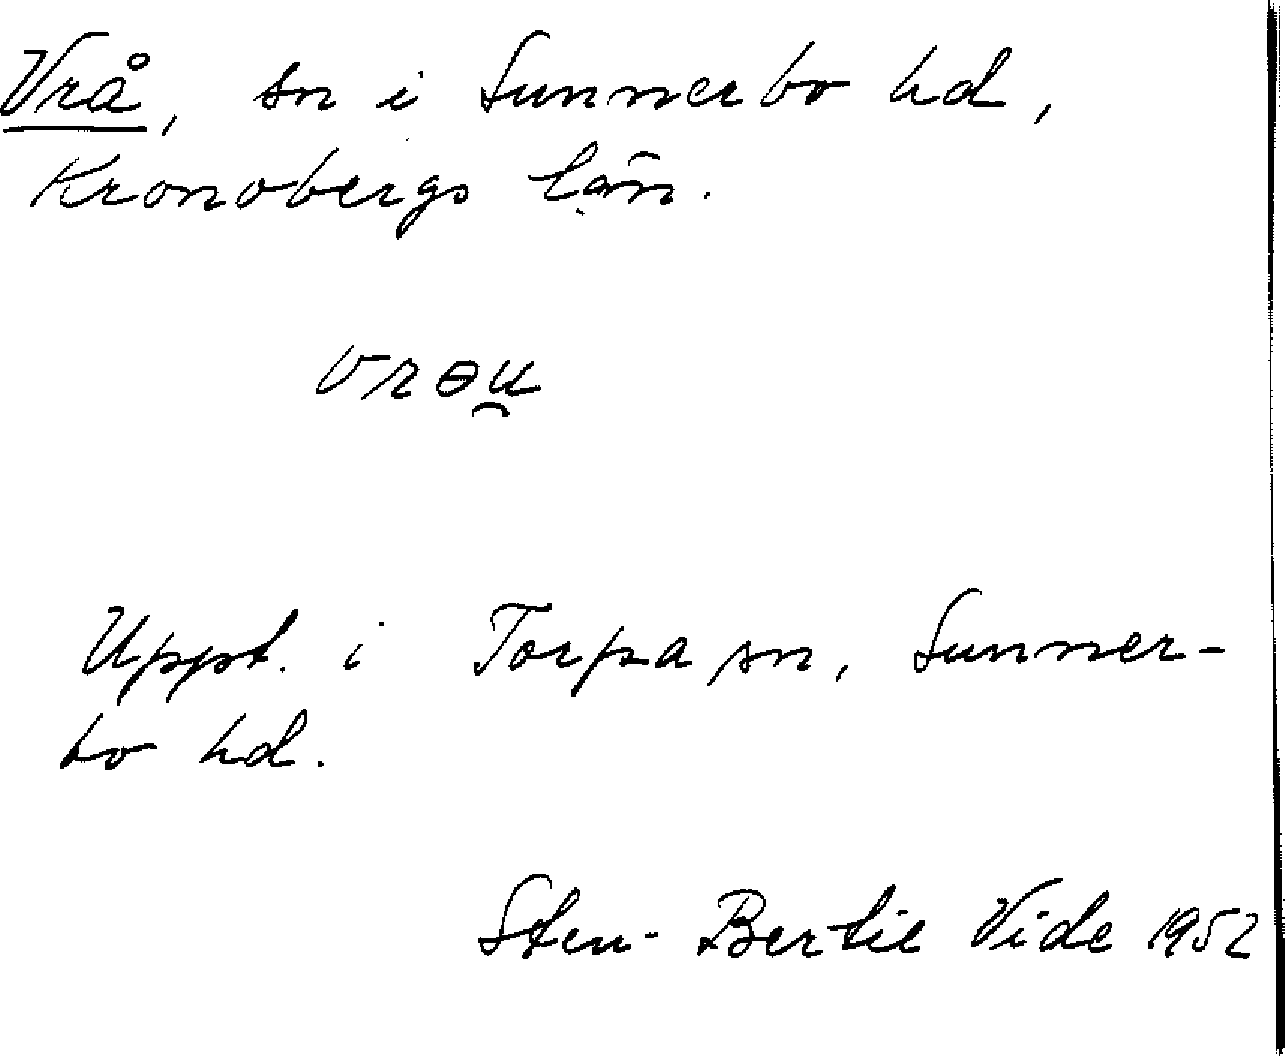 Vrå, sn i Sunnerbo hd,
Kronobergs län.
vrɵu̯
Uppt. i Torpa sn, Sunner-
bo hd.
Sten-Bertil Vide 1952